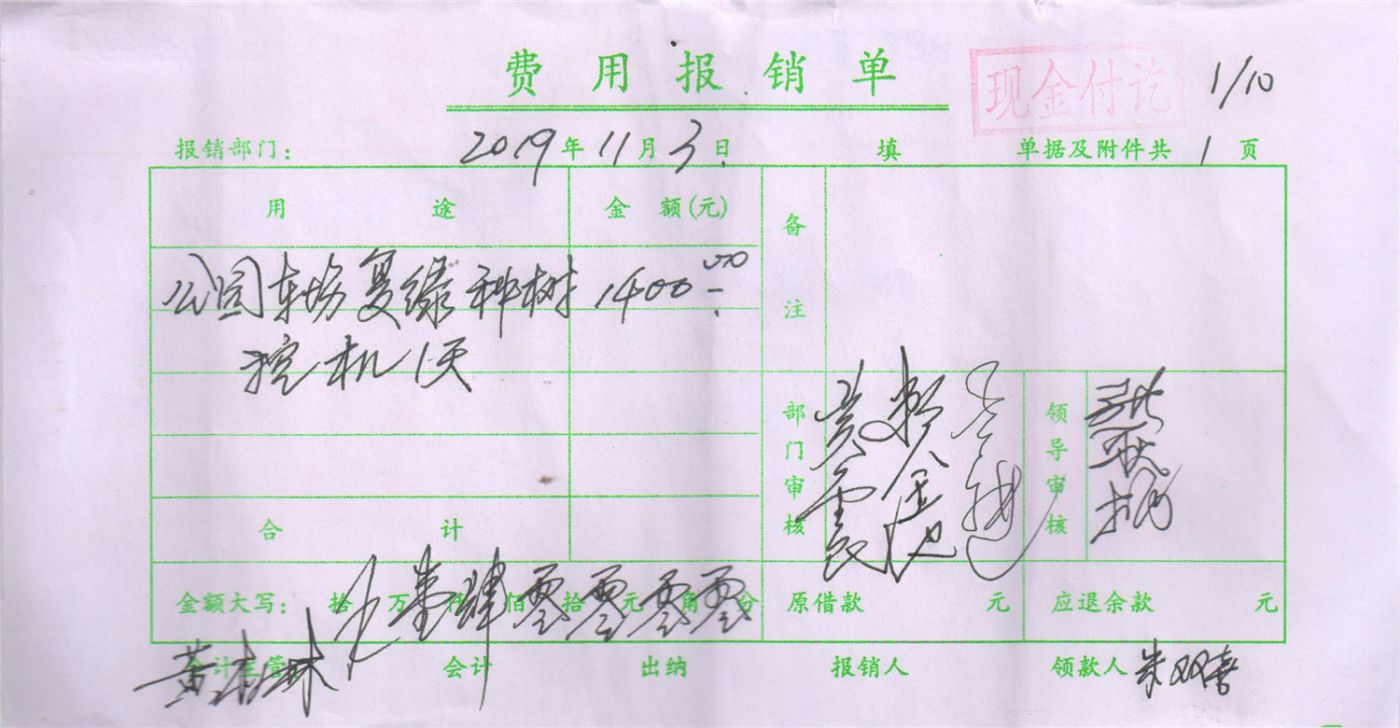 费用报销单
现金付讫
1/10
报销部门： 2019年11月3日 填 单据及附件共 1 页
用途 金额(元) 备注
公园车场复绿种树 1400.00
挖机1天
部门审核 领导审核
合计
金额大写： 拾 万 壹仟 肆佰 零拾 零元 零角 零分 原借款 元 应退余款 元
会计主管 会计 出纳 报销人 领款人 朱双喜